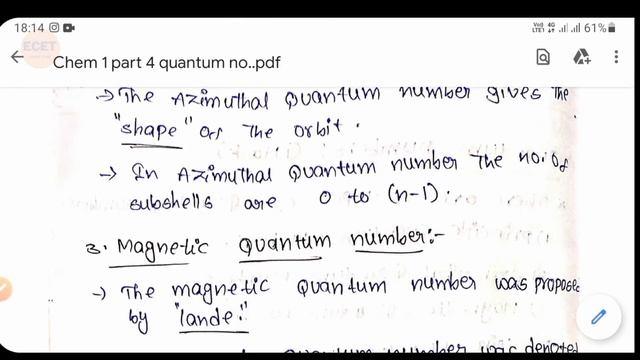 18:14
VoD 4G LTE1 61%
ECET
Chem 1 part 4 quantum no..pdf
→ The Azimuthal Quantum number gives the
"shape" of The orbit.
→ In Azimuthal Quantum number The no.of
subshells are 0 to (n-1).
3. Magnetic Quantum number:-
→ The magnetic Quantum number was propose
by "lande."
Quantum number was denoted